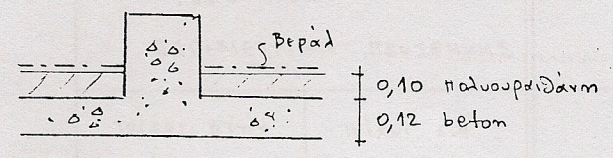 Βεράλ
0,10 πολυουραιθάνη
0,12 beton